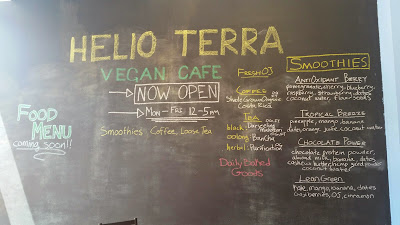 HELIO TERRA
VEGAN CAFE
NOW OPEN
Mon - Fri 12-5pm
Smoothies Coffee, Loose Tea
Food
Menu
coming soon!!
Fresh OJ
Coffee
Shade Grown Organic
Costa Rica
Tea
black
oolong
herbal Purification
Daily Baked
Goods
SMOOTHIES
AntiOxidant Berry
pomegranate, cherry, blueberry,
raspberry, strawberry, dates
coconut water, flax seeds
Tropical Breeze
pineapple, mango, banana
dates, orange juice, coconut water
Chocolate Power
chocolate protein powder,
almond milk, banana, dates
cashew butter, hemp seed powder
coconut water
Lean Green
Kale, mango, banana, dates
OJ, cinnamon